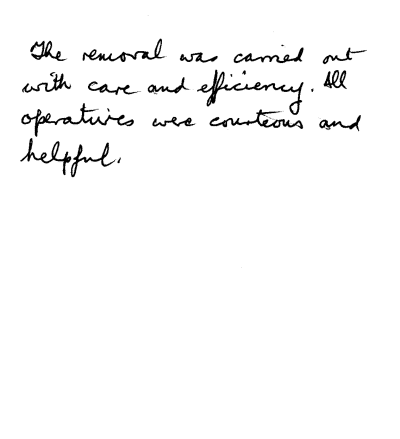 The removal was carried out
with care and efficiency. All
operatives were courteous and
helpful.